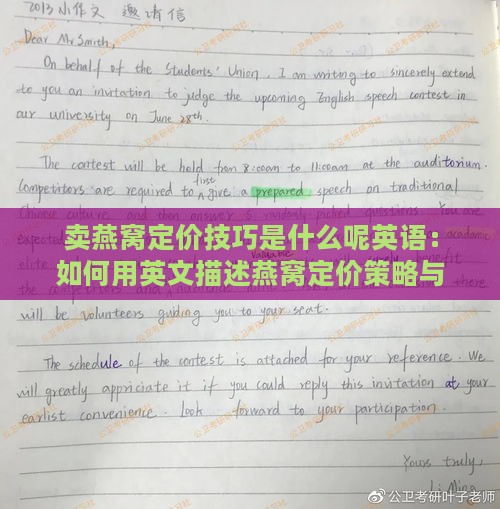 2013小作文 邀请信
Dear Mr Smith,
On behalf of the Students' Union, I am writing to sincerely extend
to you an invitation to judge the upcoming English speech contest in
our university on June 28th.
The contest will be held from 8:00am to 11:00am at the auditorium.
Competitors are required to first give a prepared speech on traditional
Chinese culture and then answer
卖燕窝定价技巧是什么呢英语：
如何用英文描述燕窝定价策略与
will be volunteers guiding you to your seat.
The schedule of the contest is attached for your reference. We
will greatly appriciate it if you could reply this invitation at your
earlist convenience. Look forward to your participation.
Yours truly,
Li Ming
@公卫考研叶子老师